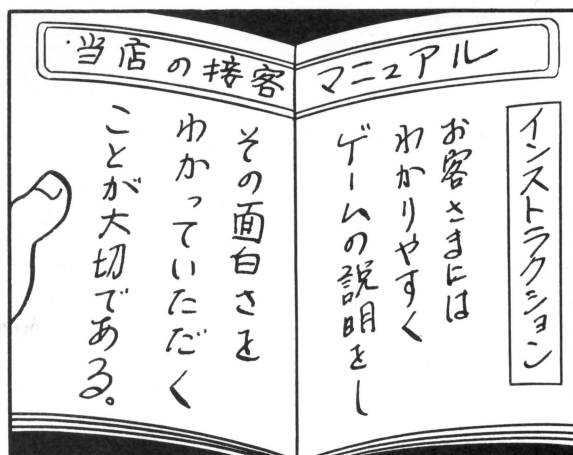 当店の接客マニュアル
インストラクション
お客さまには
わかりやすく
ゲームの説明をし
その面白さを
わかっていただく
ことが大切である。